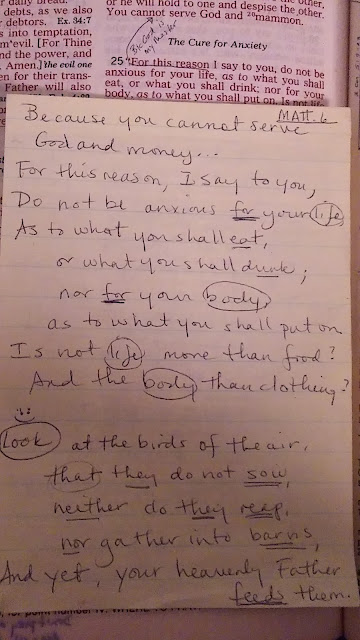 r daily bread.
debts, as we also
debtors.  Ex. 34:7
s into temptation,
m'evil. [For Thine
nd the power, and
Amen.] the evil one
en for their trans-
Father will also
or he will hold to one and despise the other.
You cannot serve God and 28mammon.
If God is
my Master
The Cure for Anxiety
25 "For this reason I say to you, do not be
anxious for your life, as to what you shall
eat, or what you shall drink; nor for your
body, as to what you shall put on. Is not life
MATT. 6
Because you cannot serve
God and money...
For this reason, I say to you,
Do not be anxious for your life
As to what you shall eat,
or what you shall drink;
nor for your body,
as to what you shall put on
Is not life more than food?
And the body than clothing?
Look at the birds of the air,
that they do not sow,
neither do they reap,
nor gather into barns,
And yet, your heavenly Father
feeds them.